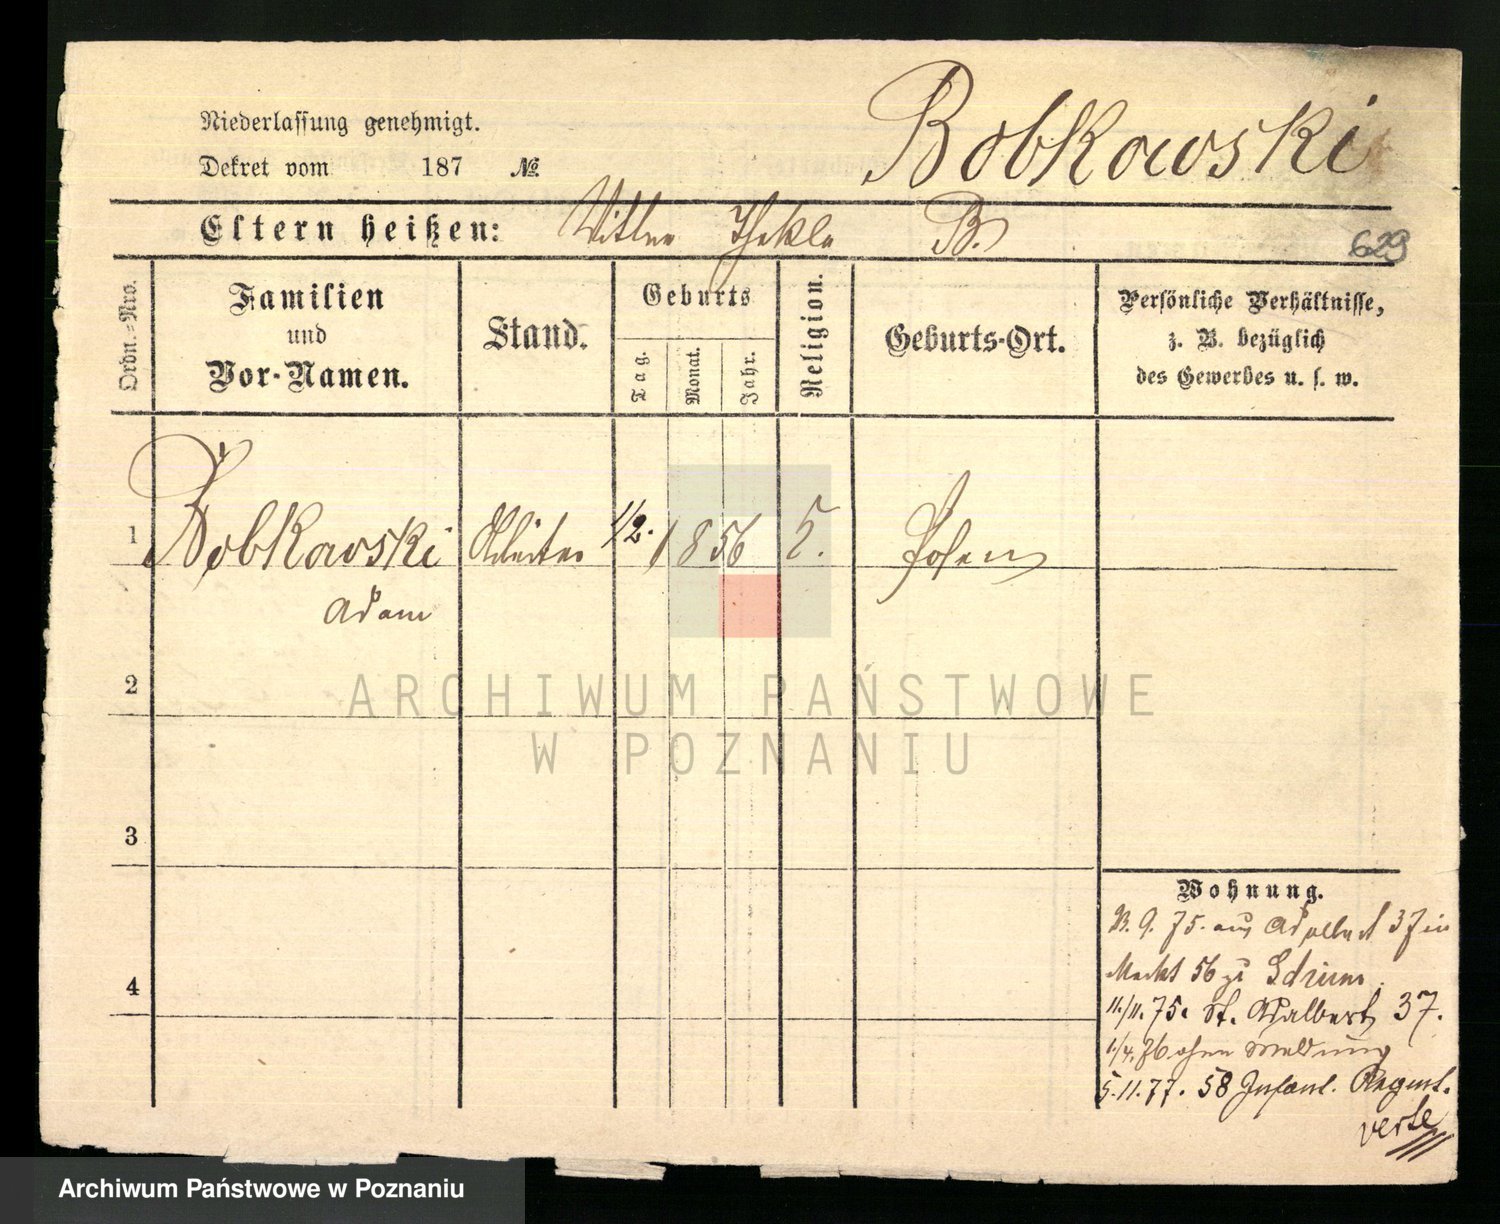 Bobkowski
Niederlassung genehmigt.
Dekret vom 187 №
Eltern heißen: Thekla B.
629
Ordn.-Nro.
Familien
und
Vor-Namen.
Stand.
Geburts
Tag.
Monat.
Jahr.
Religion.
Geburts-Ort.
Persönliche Verhältnisse,
z. B. bezüglich
des Gewerbes u. s. w.
1 Bobkowski 1/2. 1856 Posen
Adam
2
ARCHIWUM PAŃSTWOWE
W POZNANIU
3
Wohnung.
9. 75. aus Adalbert 37 in
Markt 56 zu
4
11./11. 75. St. Adalbert 37.
1/4. 76 ohne Meldung
5.11.77. 58 Infant. Regmt.
verte
Archiwum Państwowe w Poznaniu